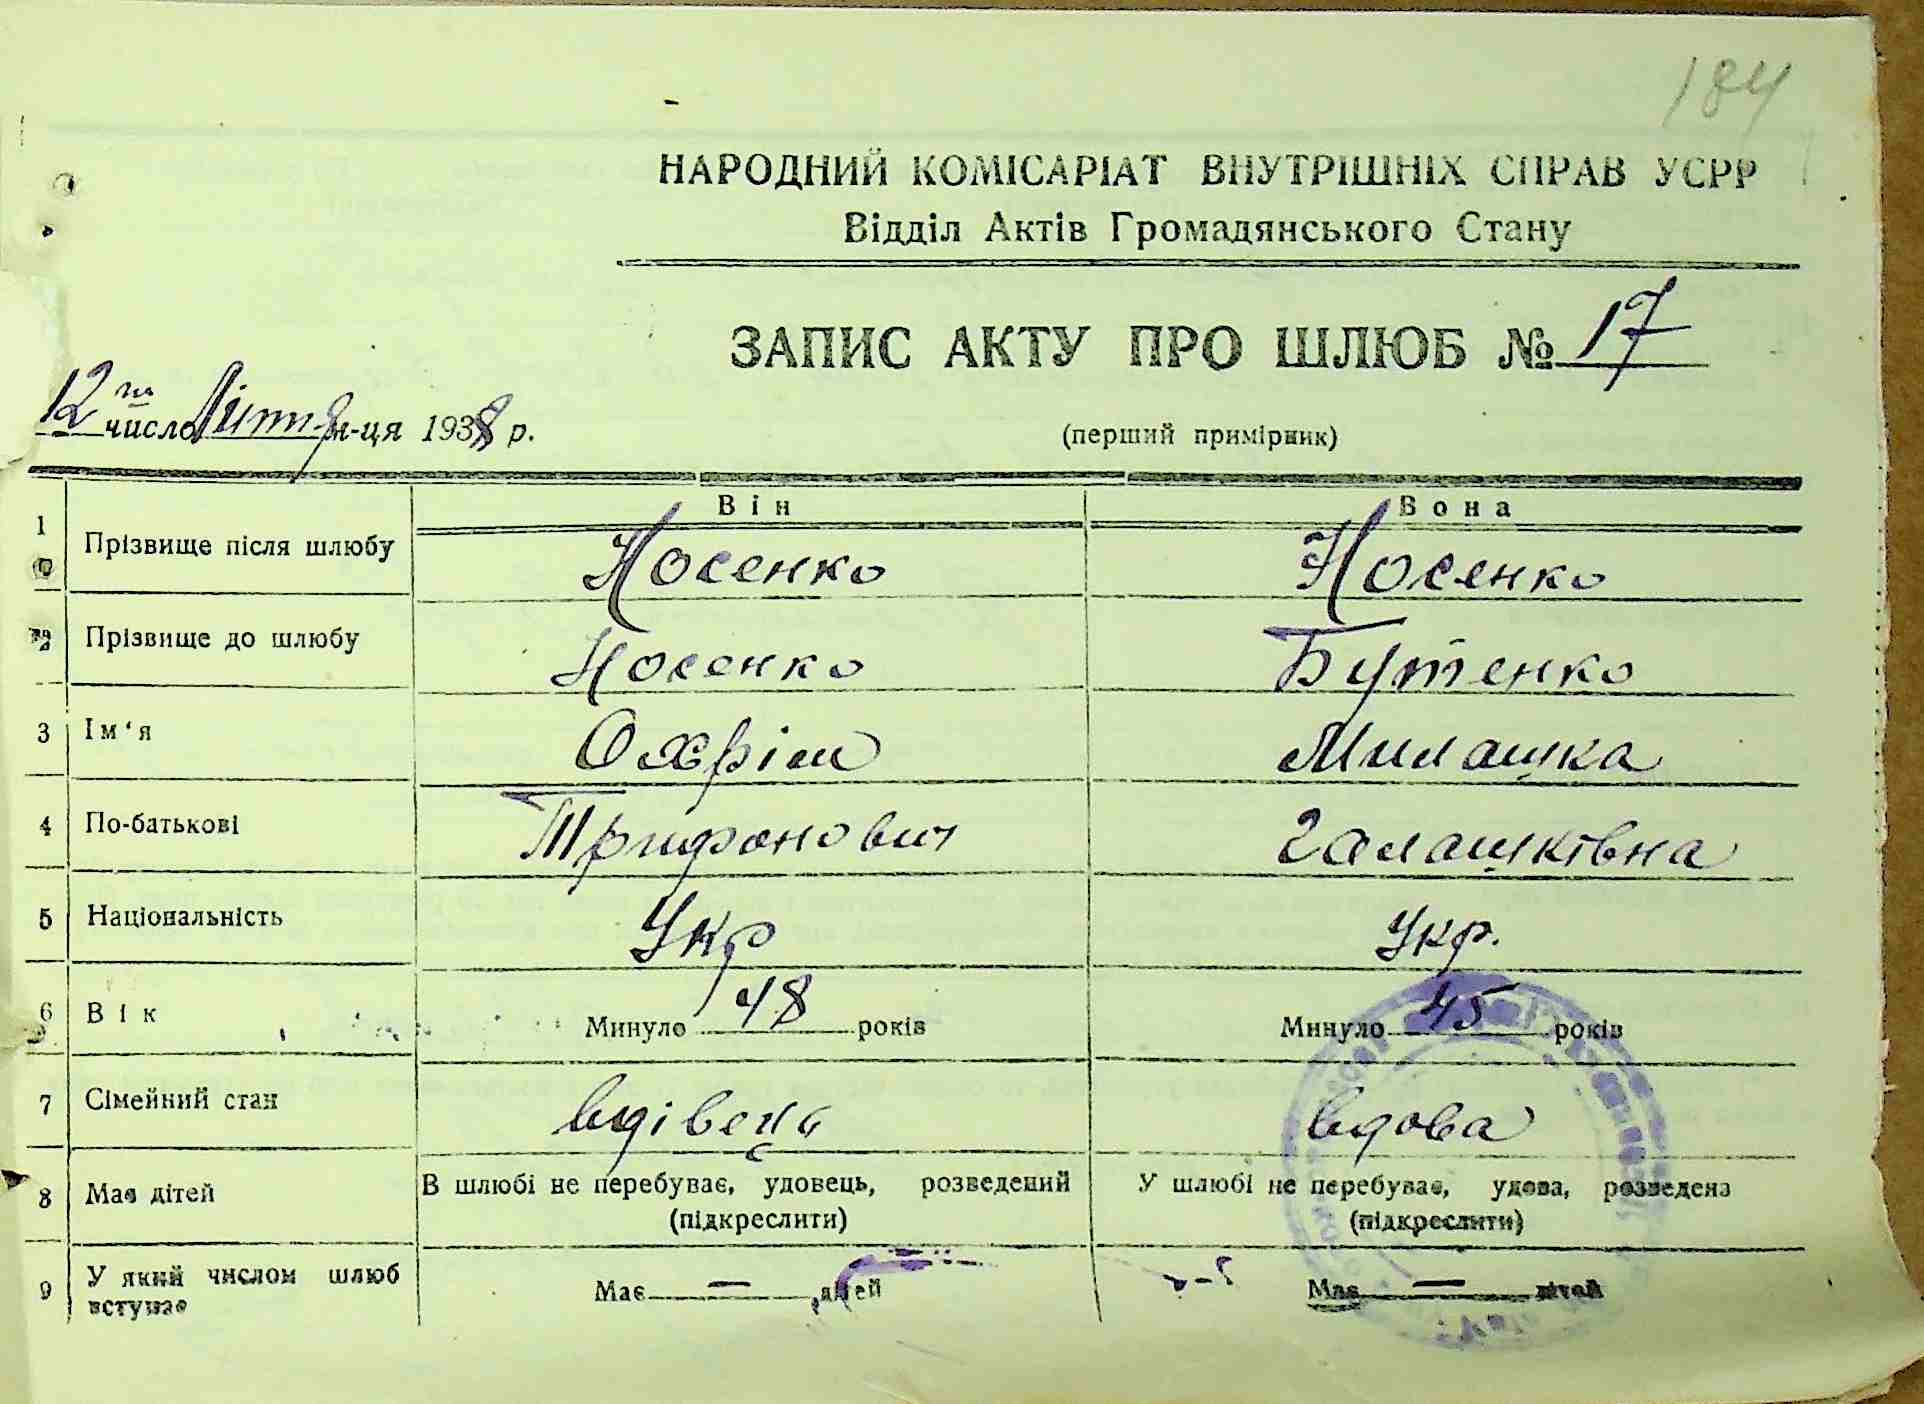 184
НАРОДНИЙ КОМІСАРІАТ ВНУТРІШНІХ СПРАВ УСРР
Відділ Актів Громадянського Стану
ЗАПИС АКТУ ПРО ШЛЮБ № 17
12 го число м-ця 1938 р.
(перший примірник)
Він Вона
1 Прізвище після шлюбу Носенко Носенко
2 Прізвище до шлюбу Носенко Бутенко
3 Ім'я Охрім Милашка
4 По-батькові Трифонович Галашківна
5 Національність Укр Укр.
6 Вік Минуло 48 років Минуло 45 років
7 Сімейний стан вдівець вдова
8 Має дітей В шлюбі не перебуває, удовець, розведений У шлюбі не перебуває, удова, розведена
(підкреслити) (підкреслити)
9 У який числом шлюб вступає Має — дітей Має — дітей